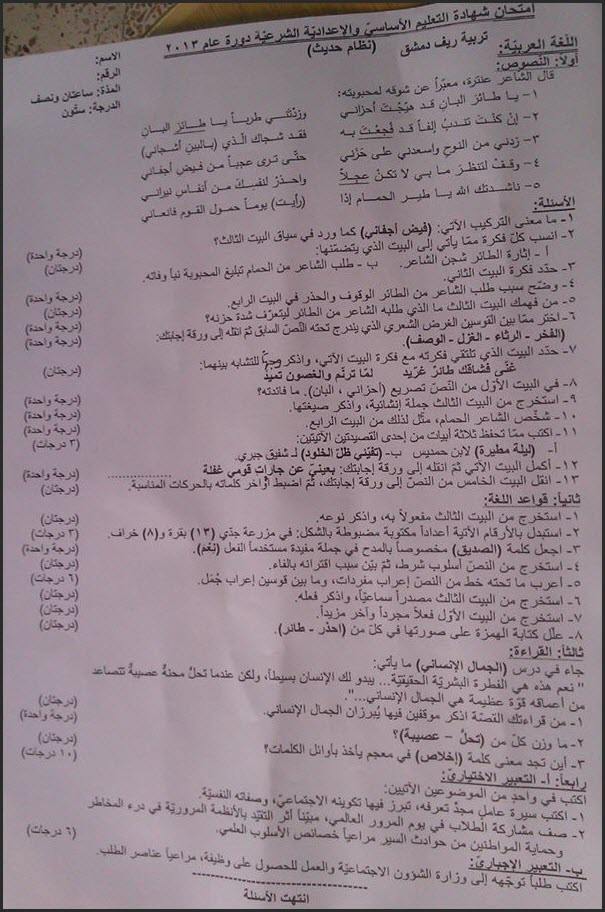 امتحان شهادة التعليم الأساسيّ والإعداديّة الشرعيّة دورة عام ٢٠١٣
اللّغة العربيّة: تربية ريف دمشق (نظام حديث)
الاسم:
الرقم:
المدّة: ساعتان ونصف
الدرجة: ستّون
أولاً: النّصوص:
قال الشاعر عنترة، معبّراً عن شوقه لمحبوبته:
١- يا طائرَ البانِ قد هيّجْتَ أحزاني وزدْتَني طرباً يا طائرَ البانِ
٢- إنْ كنْتَ تندبُ إلفاً قد فُجِعْتَ به فقد شجاكَ الّذي (بالبينِ أشجاني)
٣- زدني من النّوحِ واسعدني على حَزَني حتّى ترى عجباً من فيضِ أجفاني
٤- وقفْ لتنظرَ ما بي لا تكنْ عجِلاً واحذرْ لنفسِكَ من أنفاسِ نيراني
٥- ناشدتك الله يا طير الحمام إذا (رأيت) يوماً حمول القوم فانعاني
الأسئلة:
١- ما معنى التركيب الآتي: (فيض أجفاني) كما ورد في سياق البيت الثالث؟ (درجة واحدة)
٢- انسب كلّ فكرة ممّا يأتي إلى البيت الذي يتضمّنها: (درجتان)
أ - إثارة الطائر شجن الشاعر. ب - طلب الشاعر من الحمام تبليغ المحبوبة نبأ وفاته.
٣- حدّد فكرة البيت الثاني. (درجة واحدة)
٤- وضّح سبب طلب الشاعر من الطائر الوقوف والحذر في البيت الرابع. (درجتان)
٥- من فهمك البيت الثالث ما الذي طلبه الشاعر من الطائر ليتعرّف شدة حزنه؟ (درجة واحدة)
٦- اختر ممّا بين القوسين الغرض الشعري الذي يندرج تحته النّصّ السابق ثمّ انقله إلى ورقة إجابتك: (درجة واحدة)
(الفخر - الرثاء - الغزل - الوصف).
٧- حدّد البيت الذي تلتقي فكرته مع فكرة البيت الآتي، واذكر وجهاً للتشابه بينهما: (درجتان)
غنّى فشاقك طائرٌ غرّيد لمّا ترنّم والغصون تميدُ
٨- في البيت الأوّل من النّصّ تصريع (أحزاني ، البان). ما فائدته؟ (درجة واحدة)
٩- استخرج من البيت الثالث جملة إنشائية، واذكر صيغتها. (درجة واحدة)
١٠- شخّص الشاعر الحمام، مثّل لذلك من البيت الرابع. (درجة واحدة)
١١- اكتب ممّا تحفظ ثلاثة أبيات من إحدى القصيدتين الآتيتين: (٣ درجات)
أ- (ليلة مطيرة) لابن حمديس ب- (تفيّئي ظلّ الخلود) لـ شفيق جبري.
١٢- أكمل البيت الآتي ثمّ انقله إلى ورقة إجابتك: بعينيّ عن جاراتِ قومي غفلة .............. (درجة واحدة)
١٣- انقل البيت الخامس من النّصّ إلى ورقة إجابتك، ثمّ اضبط أواخر كلماته بالحركات المناسبة. (درجتان)
ثانياً: قواعد اللغة:
١- استخرج من البيت الثالث مفعولاً به، واذكر نوعه. (درجتان)
٢- استبدل بالأرقام الآتية أعداداً مكتوبة مضبوطة بالشكل: في مزرعة جدّي (١٣) بقرة و(٨) خراف. (٣ درجات)
٣- اجعل كلمة (الصديق) مخصوصاً بالمدح في جملة مفيدة مستخدماً الفعل (نِعْمَ). (درجة واحدة)
٤- استخرج من النصّ أسلوب شرط، ثمّ بيّن سبب اقترانه بالفاء. (درجتان)
٥- أعرب ما تحته خط من النصّ إعراب مفردات، وما بين قوسين إعراب جُمَل. (٦ درجات)
٦- استخرج من البيت الثالث مصدراً سماعيّاً، واذكر فعله. (درجتان)
٧- استخرج من البيت الأوّل فعلاً مجرداً وآخر مزيداً. (درجتان)
٨- علّل كتابة الهمزة على صورتها في كلّ من (احذر - طائر). (درجتان)
ثالثاً: القراءة:
جاء في درس (الجمال الإنساني) ما يأتي:
" نعم هذه هي الفطرة البشريّة الحقيقيّة... يبدو لك الإنسان بسيطاً، ولكن عندما تحلّ محنةٌ عصيبةٌ تتصاعد
من أعماقه قوّة عظيمة هي الجمال الإنساني...".
١- من قراءتك القصّة اذكر موقفين فيها يُبرزان الجمال الإنساني. (درجتان)
٢- ما وزن كلّ من (تحلّ - عصيبة)؟ (درجة واحدة)
٣- أين تجد معنى كلمة (إخلاص) في معجم يأخذ بأوائل الكلمات؟ (درجتان)
رابعاً: أ- التعبير الاختياريّ: (١٠ درجات)
اكتب في واحدٍ من الموضوعين الآتيين:
١- اكتب سيرة عاملٍ مجدٍّ تعرفه، تبرز فيها تكوينه الاجتماعيّ، وصفاته النفسيّة.
٢- صف مشاركة الطلاب في يوم المرور العالمي، مبيّناً أثر التقيّد بالأنظمة المروريّة في درء المخاطر
وحماية المواطنين من حوادث السير مراعياً خصائص الأسلوب العلمي.
ب- التعبير الإجباريّ: (٦ درجات)
اكتب طلباً توجّهه إلى وزارة الشؤون الاجتماعيّة والعمل للحصول على وظيفة، مراعياً عناصر الطلب.
انتهت الأسئلة